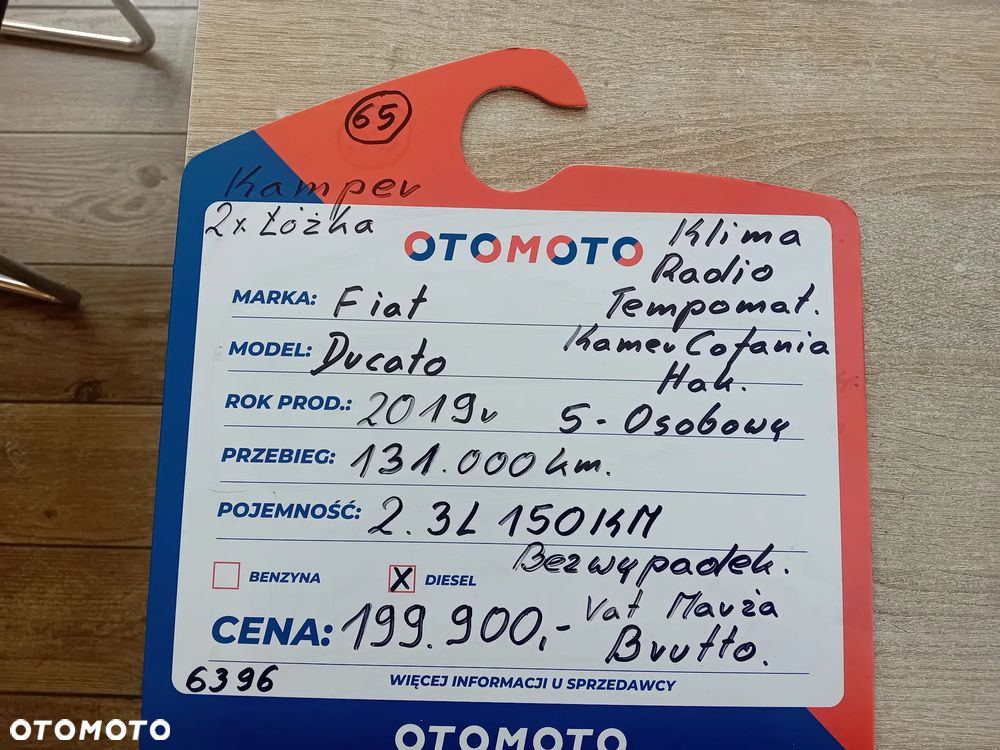 65
Kamper
2x Łóżka
OTOMOTO
Klima
Radio
MARKA: Fiat
Tempomat.
MODEL: Ducato
Kamer Cofania
Hak.
ROK PROD.: 2019r
5-Osobowy
PRZEBIEG: 131.000 km.
POJEMNOŚĆ: 2.3L 150KM
Bezwypadek.
BENZYNA X DIESEL
CENA: 199.900,-
Vat Marża
Brutto.
6396
WIĘCEJ INFORMACJI U SPRZEDAWCY
OTOMOTO
OTOMOTO